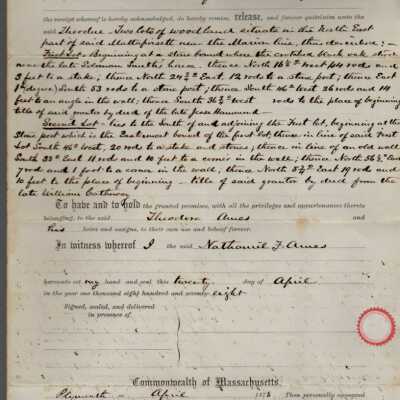 the receipt whereof is hereby acknowledged, do hereby remise, release, and forever quitclaim unto the
said Theodore - Two lots of woodland situate in the North East
part of said Mattapoisett near the Marion line, thus described; -
First Lot - Beginning at a stone bound where the certified black oak stood
near the late Edmon Smith's house - thence North 16½° West 44 rods and
3 feet to a stake; thence North 24½° East, 12 rods to a stone post; thence East
1° degree, South 53 rods to a stone post; thence South 46° West 36 rods and 14
feet to an angle in the wall; thence South 36½° west rods to the place of beginning
title of said grantor by deed of the late Jess Hammond
Second Lot - lies to the South of and adjoining the first lot, beginning at the
Stone post which is the Easternmost bound of the first lot, thence in line of said first
Lot South 46° West, 20 rods to a stake and stones; thence in line of an old wall
South 33° East 11 rods and 10 feet to a corner in the wall; thence North 56½° East
7 rods and 1 foot to a corner in the wall; thence North 5½° East 19 rods and
10 feet to the place of beginning - title of said grantor by deed from the
late William
To have and to hold the granted premises, with all the privileges and appurtenances thereto
belonging, to the said Theodore Ames and
his heirs and assigns, to their own use and behoof forever.
In witness whereof I the said Nathaniel F. Ames
hereunto set my hand and seal this twenty day of April
in the year one thousand eight hundred and seventy-eight
Signed, sealed, and delivered
in presence of
Commonwealth of Massachusetts.
Plymouth ss April 1878 Then personally appeared